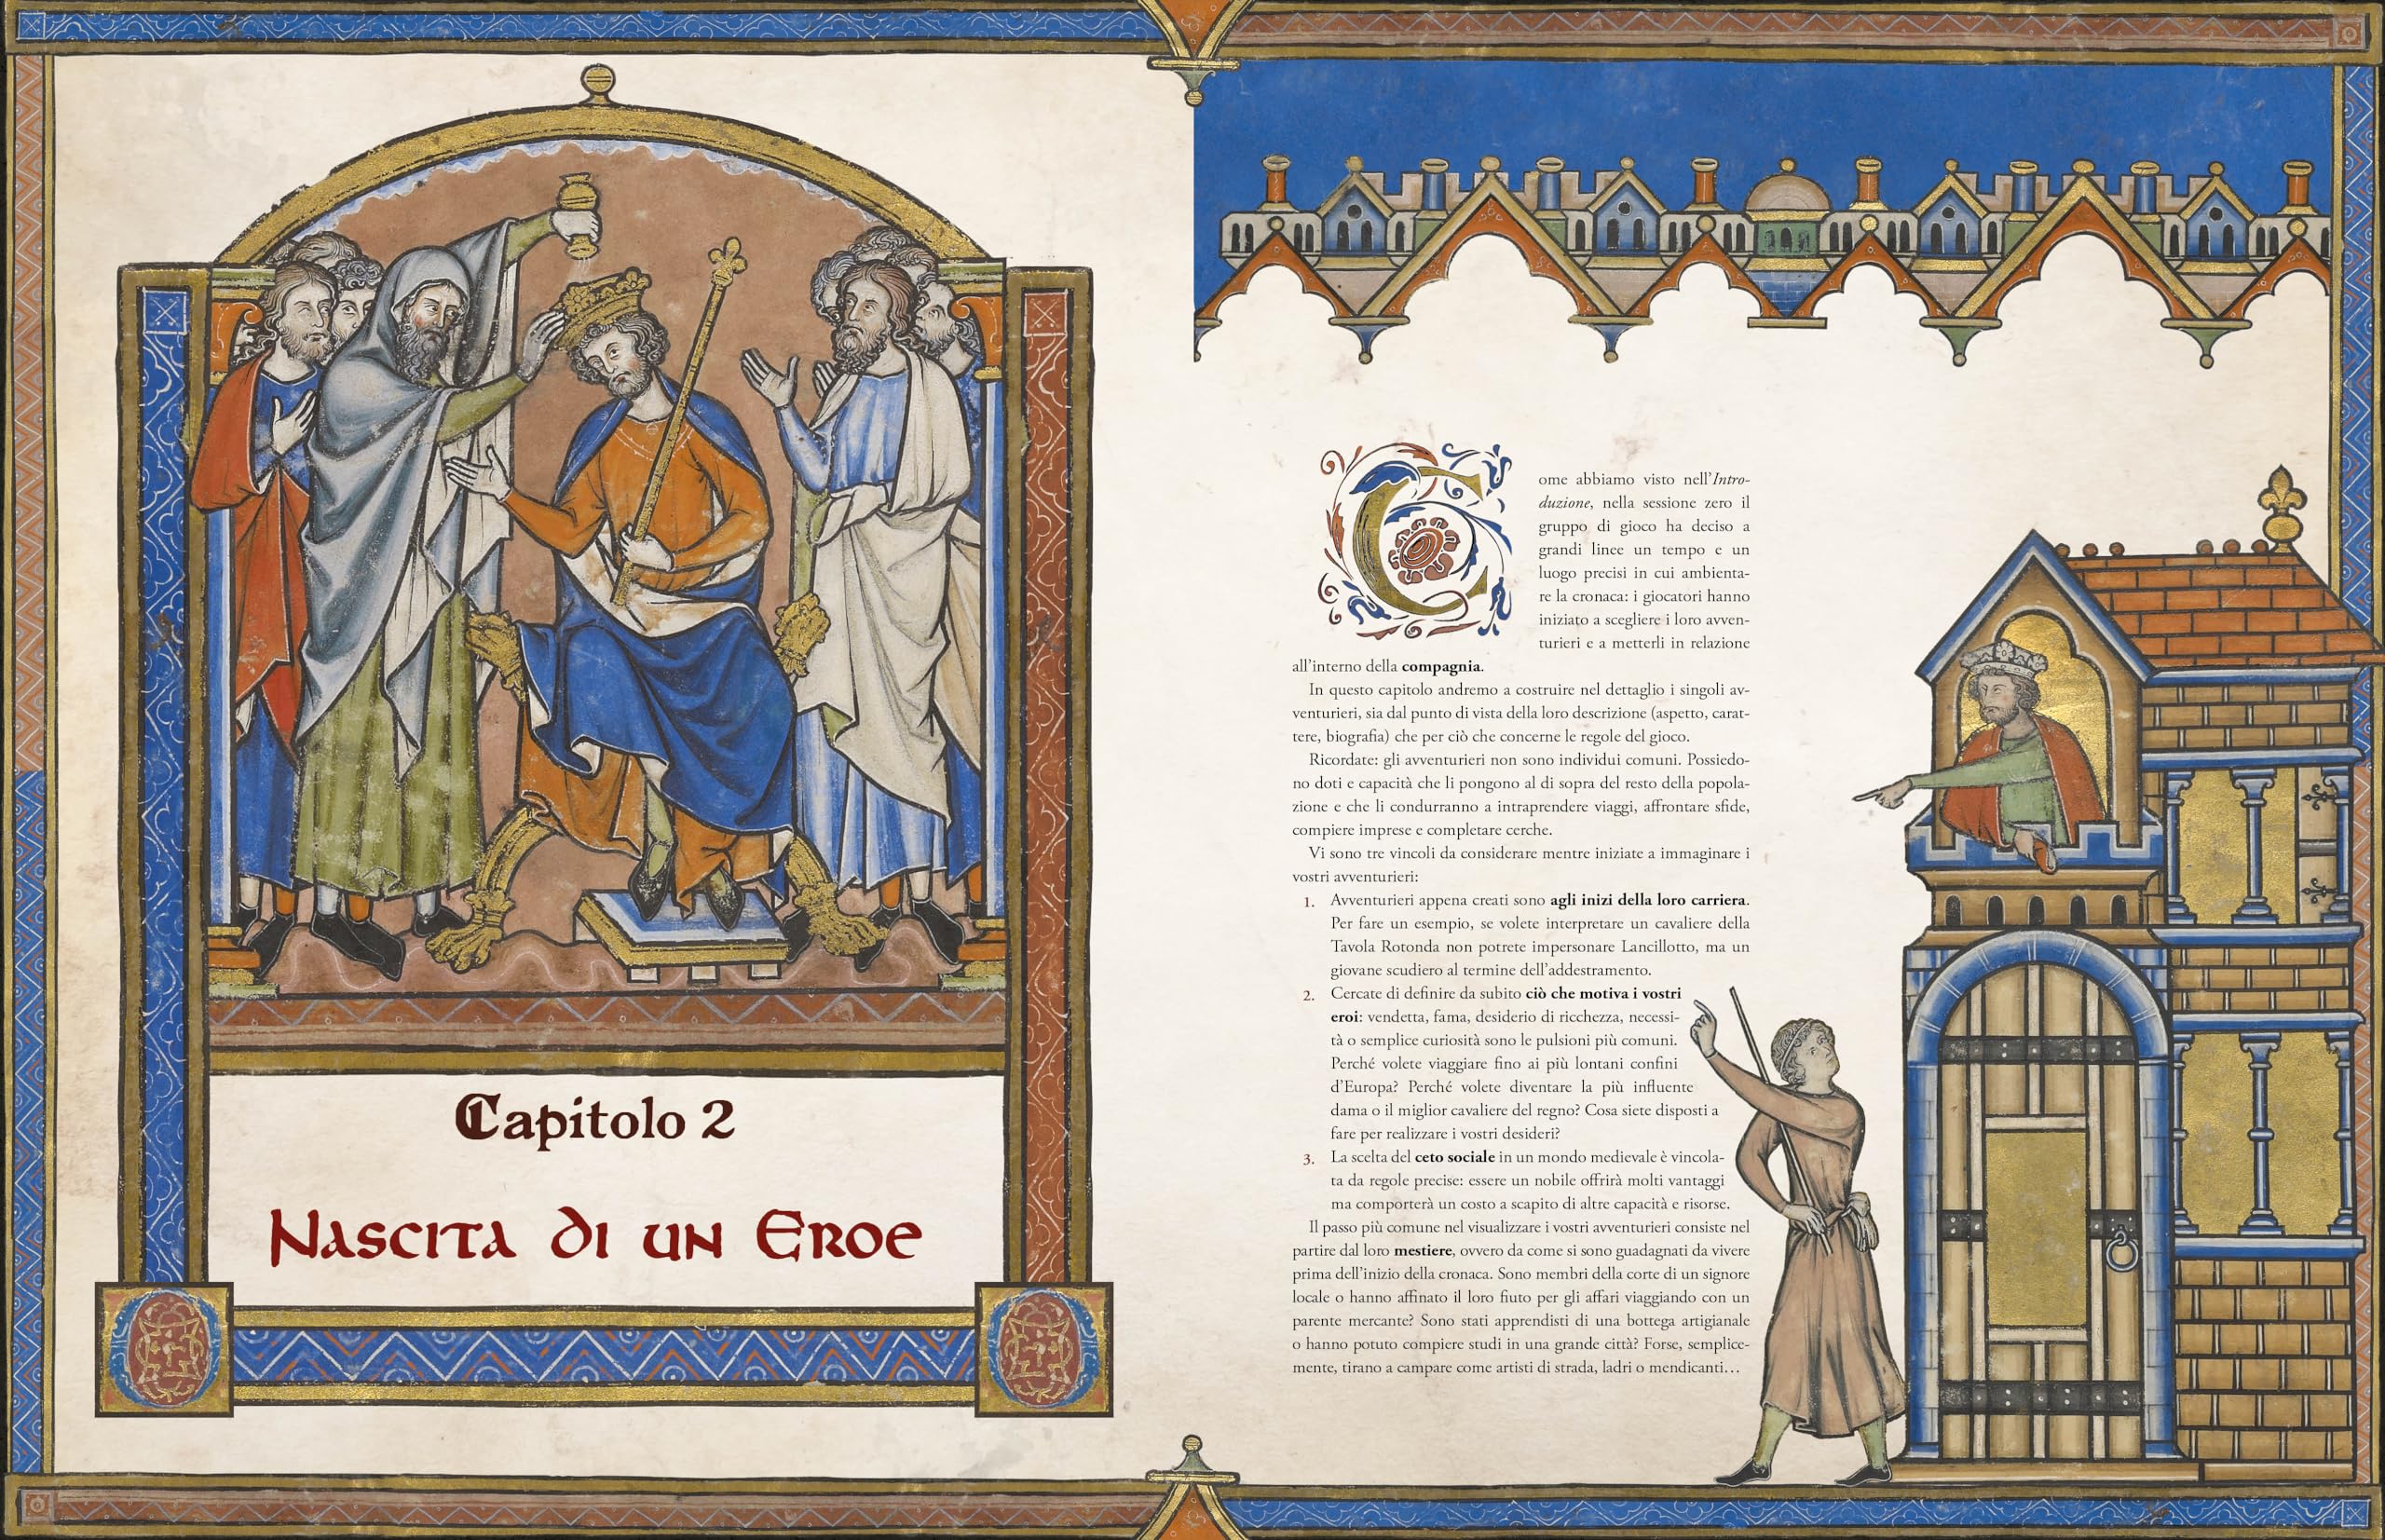 Capitolo 2
Nascita di un Eroe
Come abbiamo visto nell'Intro-
duzione, nella sessione zero il
gruppo di gioco ha deciso a
grandi linee un tempo e un
luogo precisi in cui ambienta-
re la cronaca: i giocatori hanno
iniziato a scegliere i loro avven-
turieri e a metterli in relazione
all'interno della compagnia.
In questo capitolo andremo a costruire nel dettaglio i singoli av-
venturieri, sia dal punto di vista della loro descrizione (aspetto, carat-
tere, biografia) che per ciò che concerne le regole del gioco.
Ricordate: gli avventurieri non sono individui comuni. Possiedo-
no doti e capacità che li pongono al di sopra del resto della popola-
zione e che li condurranno a intraprendere viaggi, affrontare sfide,
compiere imprese e completare cerche.
Vi sono tre vincoli da considerare mentre iniziate a immaginare i
vostri avventurieri:
1. Avventurieri appena creati sono agli inizi della loro carriera.
Per fare un esempio, se volete interpretare un cavaliere della
Tavola Rotonda non potrete impersonare Lancillotto, ma un
giovane scudiero al termine dell'addestramento.
2. Cercate di definire da subito ciò che motiva i vostri
eroi: vendetta, fama, desiderio di ricchezza, necessi-
tà o semplice curiosità sono le pulsioni più comuni.
Perché volete viaggiare fino ai più lontani confini
d'Europa? Perché volete diventare la più influente
dama o il miglior cavaliere del regno? Cosa siete disposti a
fare per realizzare i vostri desideri?
3. La scelta del ceto sociale in un mondo medievale è vincola-
ta da regole precise: essere un nobile offrirà molti vantaggi
ma comporterà un costo a scapito di altre capacità e risorse.
Il passo più comune nel visualizzare i vostri avventurieri consiste nel
partire dal loro mestiere, ovvero da come si sono guadagnati da vivere
prima dell'inizio della cronaca. Sono membri della corte di un signore
locale o hanno affinato il loro fiuto per gli affari viaggiando con un
parente mercante? Sono stati apprendisti di una bottega artigianale
o hanno potuto compiere studi in una grande città? Forse, semplice-
mente, tirano a campare come artisti di strada, ladri o mendicanti…